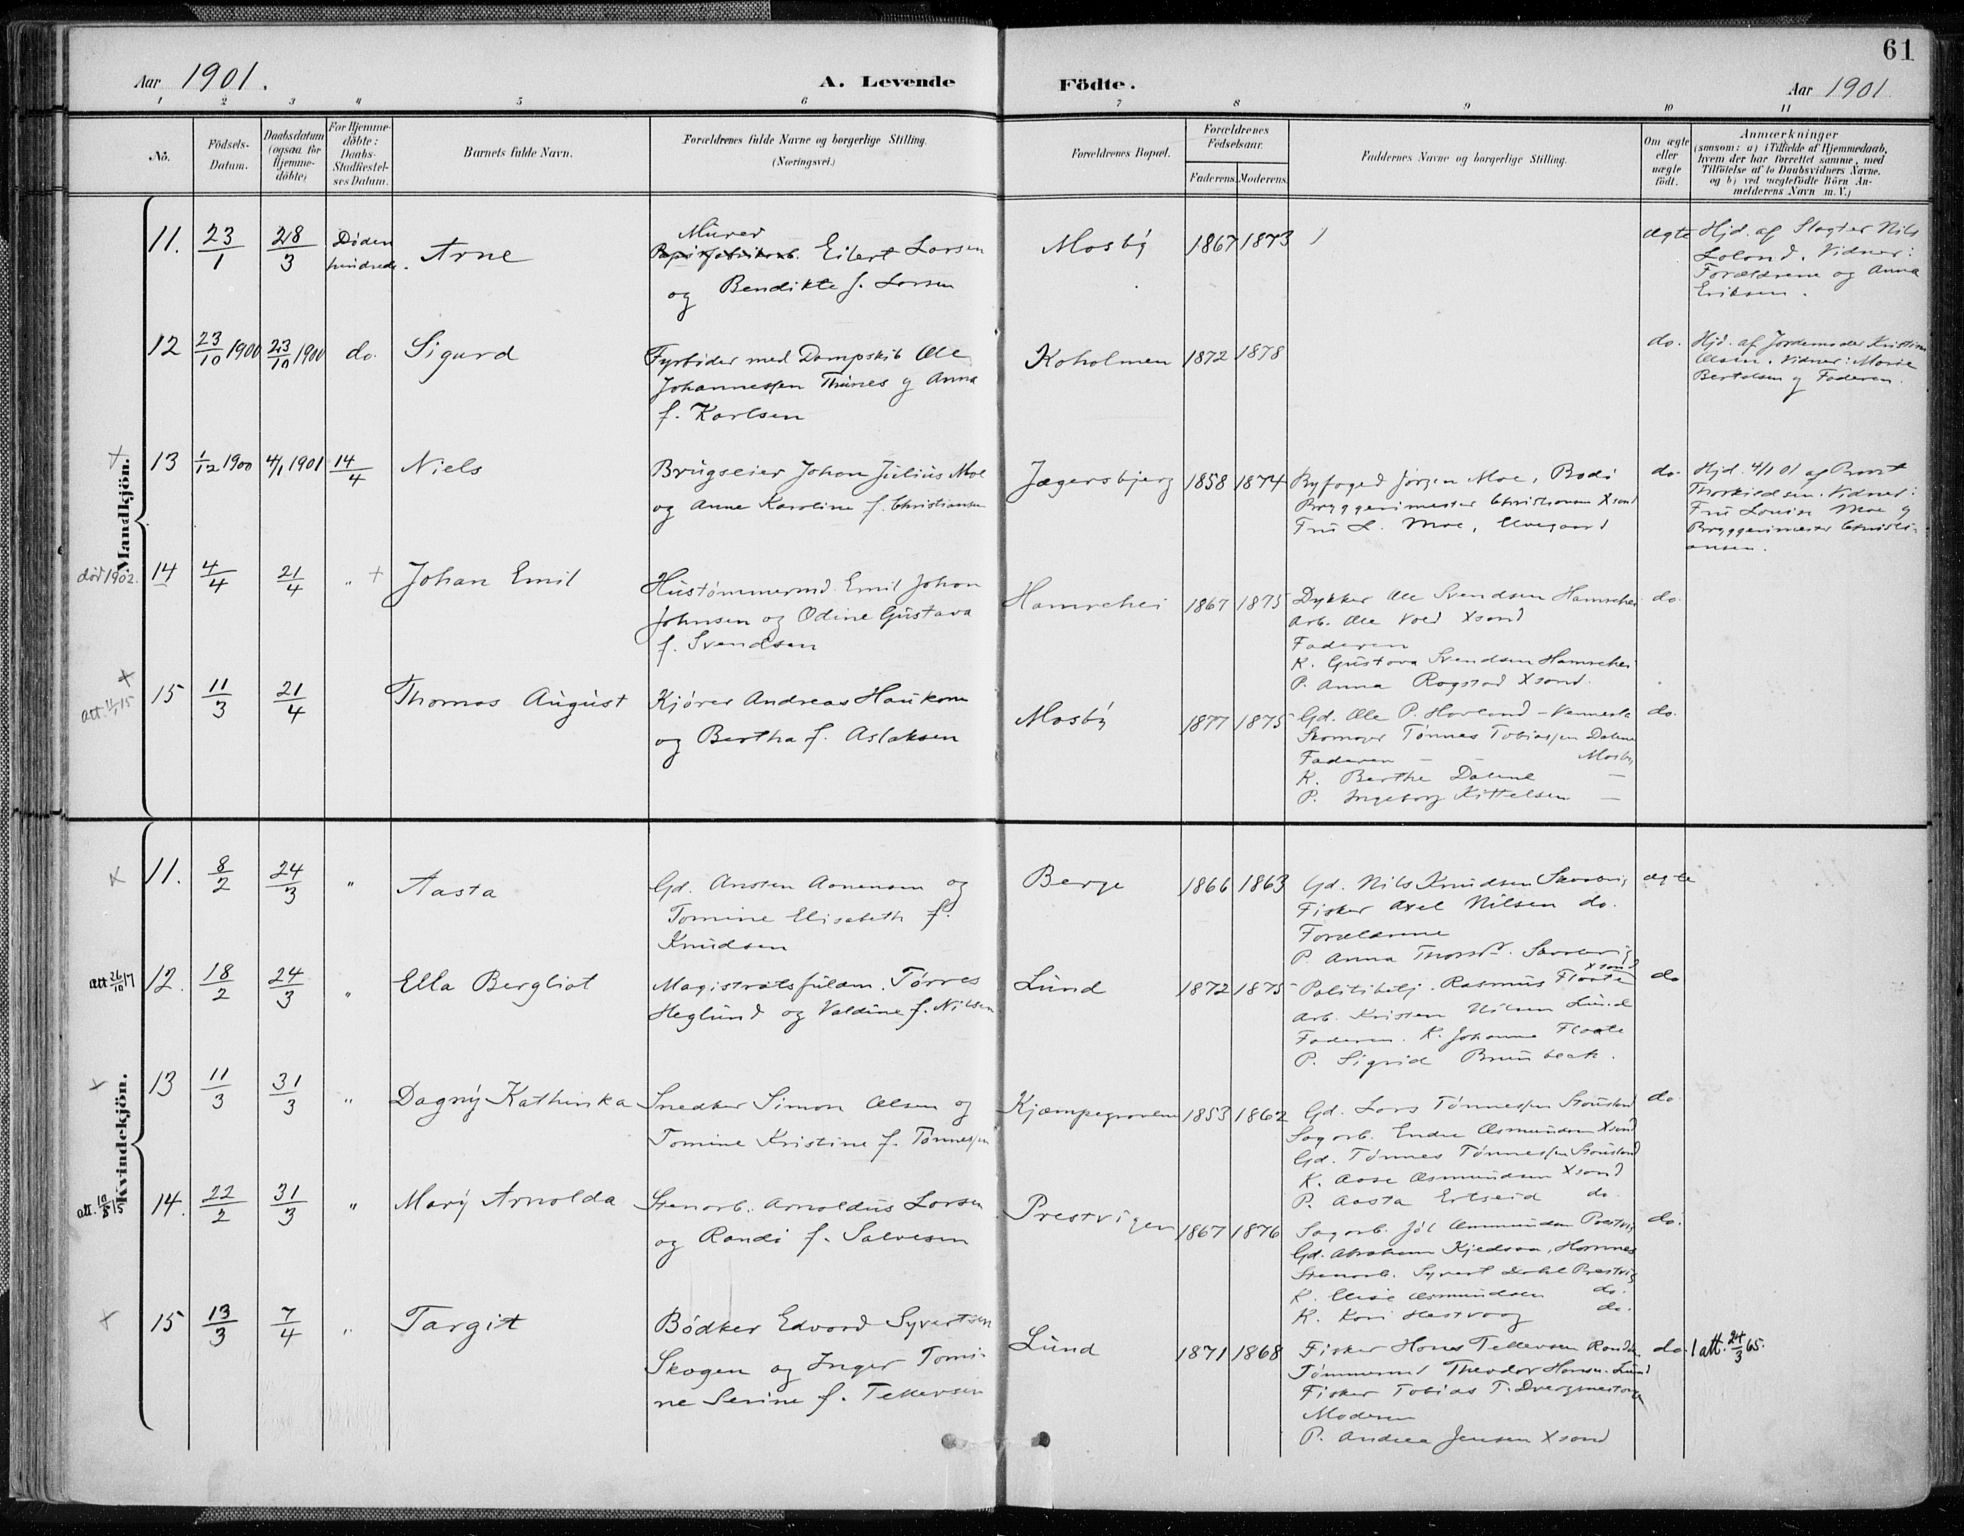 61
Aar 1901.
A. Levende
Födte.
Aar 1901
1 2 3 4 5 6 7 8 9 10 11
No.
Födsels-
Datum.
Daabsdatum
(ogsaa for
Hjemme-
döbte)
For Hjemme-
döbte:
Daabs-
Stadfæstel-
ses Datum.
Barnets fulde Navn.
Forældrenes fulde Navne og borgerlige Stilling.
(Næringsvei.)
Forældrenes Bopæl.
Forældrenes
Födselsaar.
Faderens.
Moderens.
Faddernes Navne og borgerlige Stilling.
Om ægte
eller
uægte
födt.
Anmærkninger
(saasom: a) i Tilfælde af Hjemmedaab,
hvem der har forrettet samme, med
Tilföielse af to Daabsvidners Navne.
og b) ved uægtefödte Börn An-
melderens Navn m. V.)
Mandkjön.
11. 23/1 28/3 Døden
hindrede.
Arne
Murer
Eilert Larsen
og Bendikte f. Larsen
Mosby 1867 1873
ægte
Hjd. af Slagter Nils
Loland. Vidner:
Forældrene og Anna
Eriksen.
12 23/10 1900 23/10 1900 do. Sigurd
Fyrbøder med Dampskib Ole
Johannessen Thunes og Anna
f. Karlsen
Koholmen 1872 1878
do.
Hjd. af Jordemoder Kristine
Olsen. Vidner: Marie
Bertelsen og Faderen.
13 1/12 1900 4/1 1901 14/4 Niels
Brugseier Johan Julius Moe
og Anne Karoline f. Christiansen
Jægersbjerg 1858 1874
Byfoged Jørgen Moe, Bodø
Bryggerimester Christiansen Xsand
Fru L. Moe,
do.
Hjd. 4/1 01 af Provst
Thorkildsen. Vidner:
Fru Louise Moe og
Bryggerimester Christi-
ansen.
død 1902.
14 4/4 21/4 " + Johan Emil
Hustømmermd. Emil Johan
Johnsen og Odine Gustava
f. Svendsen
Hamrehei 1867 1875
Dykker Ole Svendsen Hamrehei
Arb. Ole Vold Xsand
Faderen
K. Gustava Svendsen Hamrehei
P. Anna Rogstad Xsand.
do.
15 11/3 21/4 Thomas August
Kjører Andreas Haukom
og Bertha f. Aslaksen
Mosby 1877 1875
Gd. Ole P. Hovland - Vennesla
Skomager Tønnes Tobiassen Dalene
Faderen - - Mosby
K. Berthe Dalene -
P. Ingeborg Kittelsen -
do.
Kvindekjön.
11. 8/2 24/3 " Aasta
Gd. Ansten Aanensen og
Tomine Elisabeth f.
Knudsen
Berge 1866 1863
Gd. Nils Knudsen
Fisker Axel Nilsen do.
Forældrene
P. Anna
ægte
att 26/10 17
12. 18/2 24/3 " Ella Bergliot
Magistratsfuldm. Tørres
Heglund og Valdine f. Nilsen
Lund 1872 1875
Politibetj. Rasmus Floate Xsand
Arb. Kristen Nilsen Lund
Faderen. K. Johanne Floate
P. Sigrid
do
13 11/3 31/3 " Dagny Kathinka
Snedker Simon Olsen og
Tomine Kristine f. Tønnessen
Kjæmpegravene 1853 1862
Gd. Lars Tønnessen Stousland
Sagarb. Endre Osmundsen Xsand
Gd. Tønnes Tønnessen Stousland
K. Aase Osmundsen Xsand
P. Aasta Ertseid do.
do.
14. 22/2 31/3 " Mary Arnolda
Stenarb. Arnoldus Larsen
og Randi f. Salvesen
Prestvigen 1867 1876
Sagarb. Jøl Osmundsen Prestvig
Gd. Abraham Kjedsaa, Hornnes
Stenarb. Syvert Dahl Prestvig
K. Elise Osmundsen do.
K. Kari Hestvaag do.
do.
15 13/3 7/4 " Targit
Bødker Edvard Syvertsen
Skogen og Inger Tomi-
ne Serine f. Tellevsen
Lund 1871 1868
Fisker Hans Tellevsen
Tømmermd Theodor Hansen Lund
Fisker Tobias T.
Moderen
P. Andrea Jensen Xsand
do.
1 att. 24/3 65.